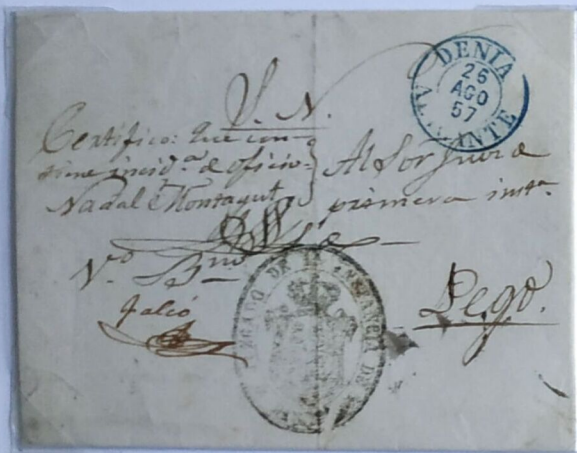 DENIA
26
AGO
57
ALICANTE
S. N.
Certifico: que con-
tiene incid.ª de oficio
Nadal Montagut
Al Sor Juez de
primera inst.ª
V.º B.no
Falcó
Pego.
JUZGADO DE 1ª INSTANCIA DE